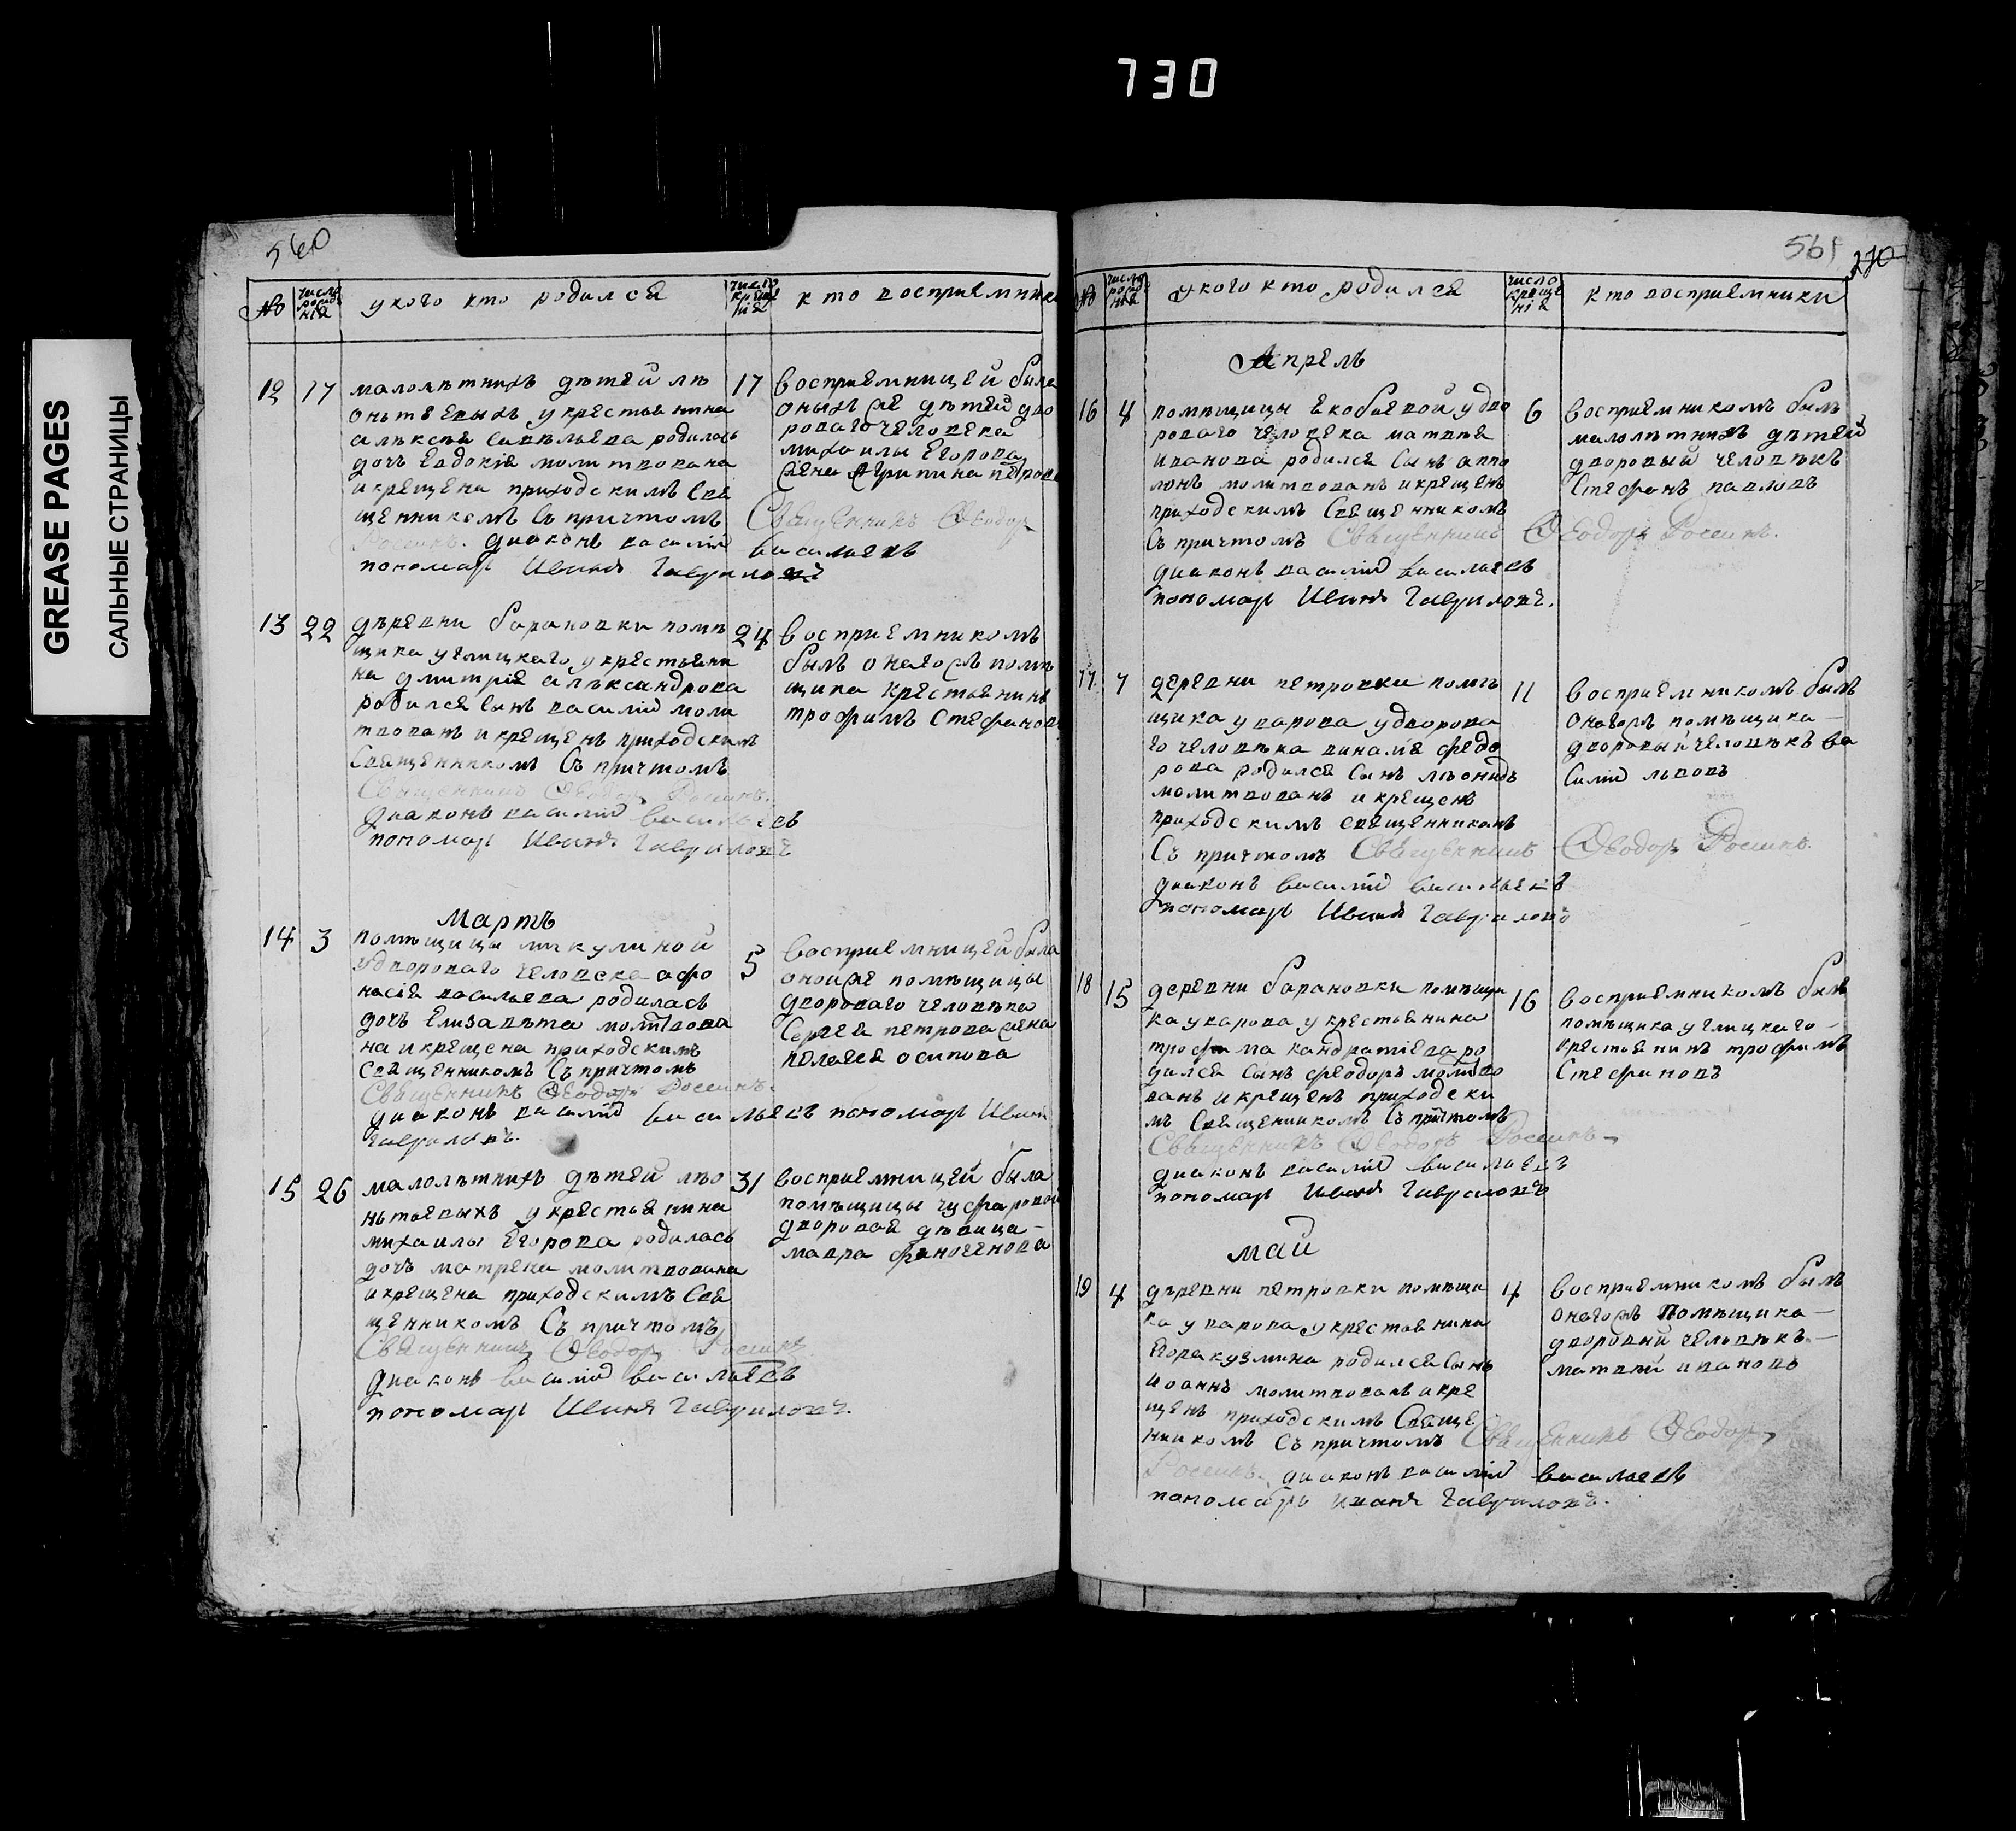 730
GREASE PAGES
САЛЬНЫЕ СТРАНИЦЫ
560
№
число рождения
укого кто родился
число крещения
кто восприемники
12 17
малолѣтнихъ дѣтей лѣ
онътьевыхъ укрестьянина
алѣксѣя савѣльева родилась
дочъ Евдокія молитвована
икрещена приходскимъ Свя
щенникомъ Съ причтомъ
Священникъ Ѳеодор
Россинъ. диаконъ василий васильевъ
пономар Иванъ Гавриловъ
17
восприемницей была
оныхже дѣтей дво
роваго человека
михаилы Егорова
жена Агрипина петрова
13 22
дѣревни барановки помѣ
щика углицкаго, укрестьяни
на дмитрія алѣксандрова
родился сынъ василий моли
твованъ и крещенъ приходскимъ
Священникомъ Съ причтомъ
Священникъ Ѳеодоръ Россинъ.
диаконъ василий васильевъ
пономар Иванъ Гавриловъ
24
восприемникомъ
былъ онагожъ помѣ
щика крестьянинъ
трофимъ Стефановъ
Мартъ
14 3
помѣщицы микулиной
удвороваго человека афо
насія васильева родилась
дочъ Елизавѣта молитвова
на и крещена приходскимъ
Священникомъ Съ причтомъ
Священникъ Ѳеодоръ Россинъ.
диаконъ василий васильевъ пономар Иванъ
Гавриловъ.
5
восприемницей была
онойже помѣщицы
двороваго человѣка
Сергея петрова жена
пелагея осипова
15 26
малолѣтнихъ дѣтей лѣо
нтьевыхъ укрестьянина
михаилы Егорова родилась
дочъ матрена молитвована
и крещена приходскимъ Свя
щенникомъ Съ причтомъ
Священникъ Ѳеодоръ Россинъ
диаконъ василий васильевъ
пономар Иванъ Гавриловъ.
31
восприемницей была
помѣщицы чуфаровой
дворовая дѣвица —
мавра финогенова
561
270
№
число рождения
укого кто родился
число крещения
кто восприемники
Апрель
16 4
помѣщицы Екобьевой удво
роваго человека матвея
Иванова родился Сынъ аппо
лонъ молитвованъ и крещенъ
приходскимъ Священникомъ
Съ причтомъ Священникъ Ѳеодоръ Россинъ.
диаконъ василий васильевъ
пономар Иванъ Гавриловъ.
6
восприемникомъ былъ
малолѣтнихъ дѣтей
дворовый человѣкъ
Стефанъ павловъ
17 7
деревни петровки помѣ
щика уварова удворова
го человѣка
рова родился Сынъ лѣонидъ
молитвованъ и крещенъ
приходскимъ священникомъ
Съ причтомъ Священникъ Ѳеодоръ Россинъ.
диаконъ василий васильевъ
пономарь Иванъ Гавриловъ
11
восприемникомъ былъ
онагожъ помѣщика —
дворовый человѣкъ ва
Силий львовъ
18 15
деревни барановки помѣщи
ка уварова укрестьянина
трофима кандратіева ро
дился Сынъ феодоръ молитво
ванъ и крещенъ приходски
мъ Священникомъ Съ причтомъ
Священникъ Ѳеодоръ Россинъ
диаконъ василий васильевъ
пономар Иванъ Гавриловъ
16
восприемникомъ былъ
помѣщика углицкаго —
крестьянинъ трофимъ
Стефановъ
май
19 4
дѣревни петровки помѣщи
ка уварова укрестьянина
Егора кузмина родился Сынъ
Иоаннъ молитвованъ икре
щенъ приходскимъ Свяще
нникомъ Съ причтомъ Священникъ Ѳеодоръ
Россинъ. диаконъ василий васильевъ
пономарь иванъ Гавриловъ.
4
восприемникомъ былъ
онагожъ Помѣщика —
дворовый человѣкъ —
матвей ивановъ